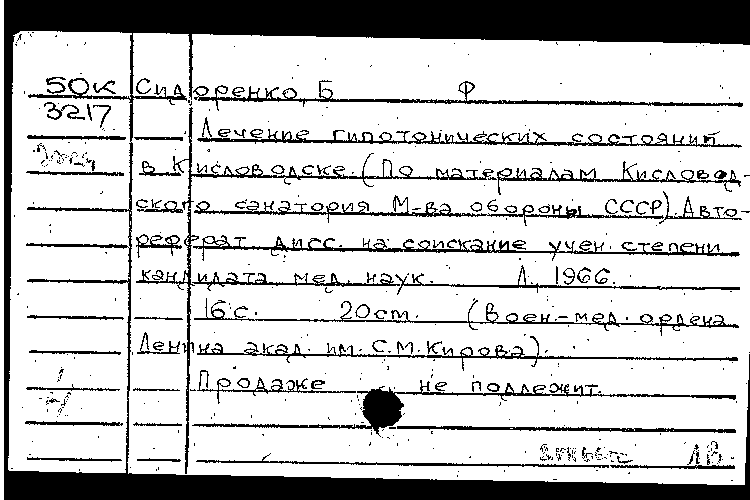 50к Сидоренко, Б Ф
3217
Лечение гипотонических состояний
в Кисловодске. (По материалам Кисловод-
ского санатория М-ва обороны СССР). Авто-
реферат дисс. на соискание учен. степени
кандидата мед. наук. Л., 1966.
16 с. 20 см. (Воен.-мед. ордена
Ленина акад. им. С.М. Кирова).
Продаже не подлежит.
ЛВ.